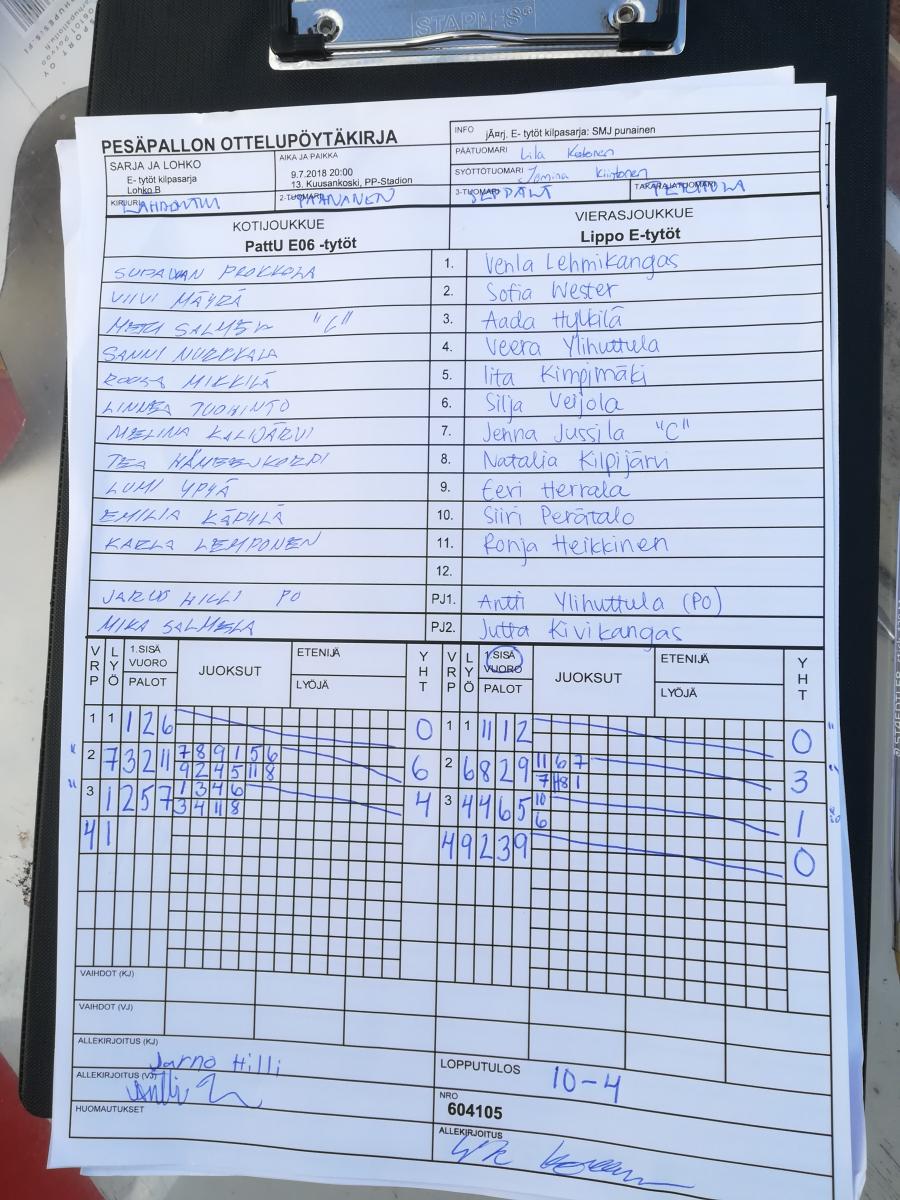 STAPLES
PESÄPALLON OTTELUPÖYTÄKIRJA
INFO jÃ¤rj. E- tytöt kilpasarja: SMJ punainen
SARJA JA LOHKO
E- tytöt kilpasarja
Lohko B
AIKA JA PAIKKA
9.7.2018 20:00
13. Kuusankoski, PP-Stadion
PÄÄTUOMARI
SYÖTTÖTUOMARI
KIRJURI LAHDENTILA
2-TUOMARI PAANANEN
3-TUOMARI SEPPÄLÄ
TAKARAJATUOMARI
KOTIJOUKKUE
PattU E06 -tytöt
VIERASJOUKKUE
Lippo E-tytöt
1. Venla Lehmikangas
VIIVI MÄYRÄ 2. Sofia Wester
MERI SALMELA "C" 3. Aada Hylkilä
SANNI NURKKALA 4. Veera Ylihuttula
ROOSA MIKKILÄ 5. Iita Kimpimäki
LINNEA TUOHINTO 6. Silja Veijola
MELINA KALIJÄRVI 7. Jenna Jussila "C"
TEA HÄMEENKORPI 8. Natalia Kilpijärvi
LUMI YPYÄ 9. Eeri Herrala
EMILIA KÄPYLÄ 10. Siiri Perätalo
KARLA LEMPONEN 11. Ronja Heikkinen
12.
HILLI PO PJ1. Antti Ylihuttula (PO)
MIKA SALMELA PJ2. Jutta Kivikangas
VRP LYÖ 1.SISÄ VUORO PALOT JUOKSUT ETENIJÄ LYÖJÄ YHT VRP LYÖ 1.SISÄ VUORO PALOT JUOKSUT ETENIJÄ LYÖJÄ YHT
1 1 1 2 6 0 1 1 11 1 2 0
2 7 3 2 11 7 8 9 1 5 6 6 2 6 8 2 9 11 6 7 3
9 2 4 5 11 8 7 8 1
3 1 2 5 7 1 3 4 6 4 3 4 4 6 5 10 1
3 4 11 8 6
4 1 4 9 2 3 9 0
VAIHDOT (KJ)
VAIHDOT (VJ)
ALLEKIRJOITUS (KJ) Jarno Hilli
ALLEKIRJOITUS (VJ) Antti
HUOMAUTUKSET
LOPPUTULOS 10-4
NRO
604105
ALLEKIRJOITUS